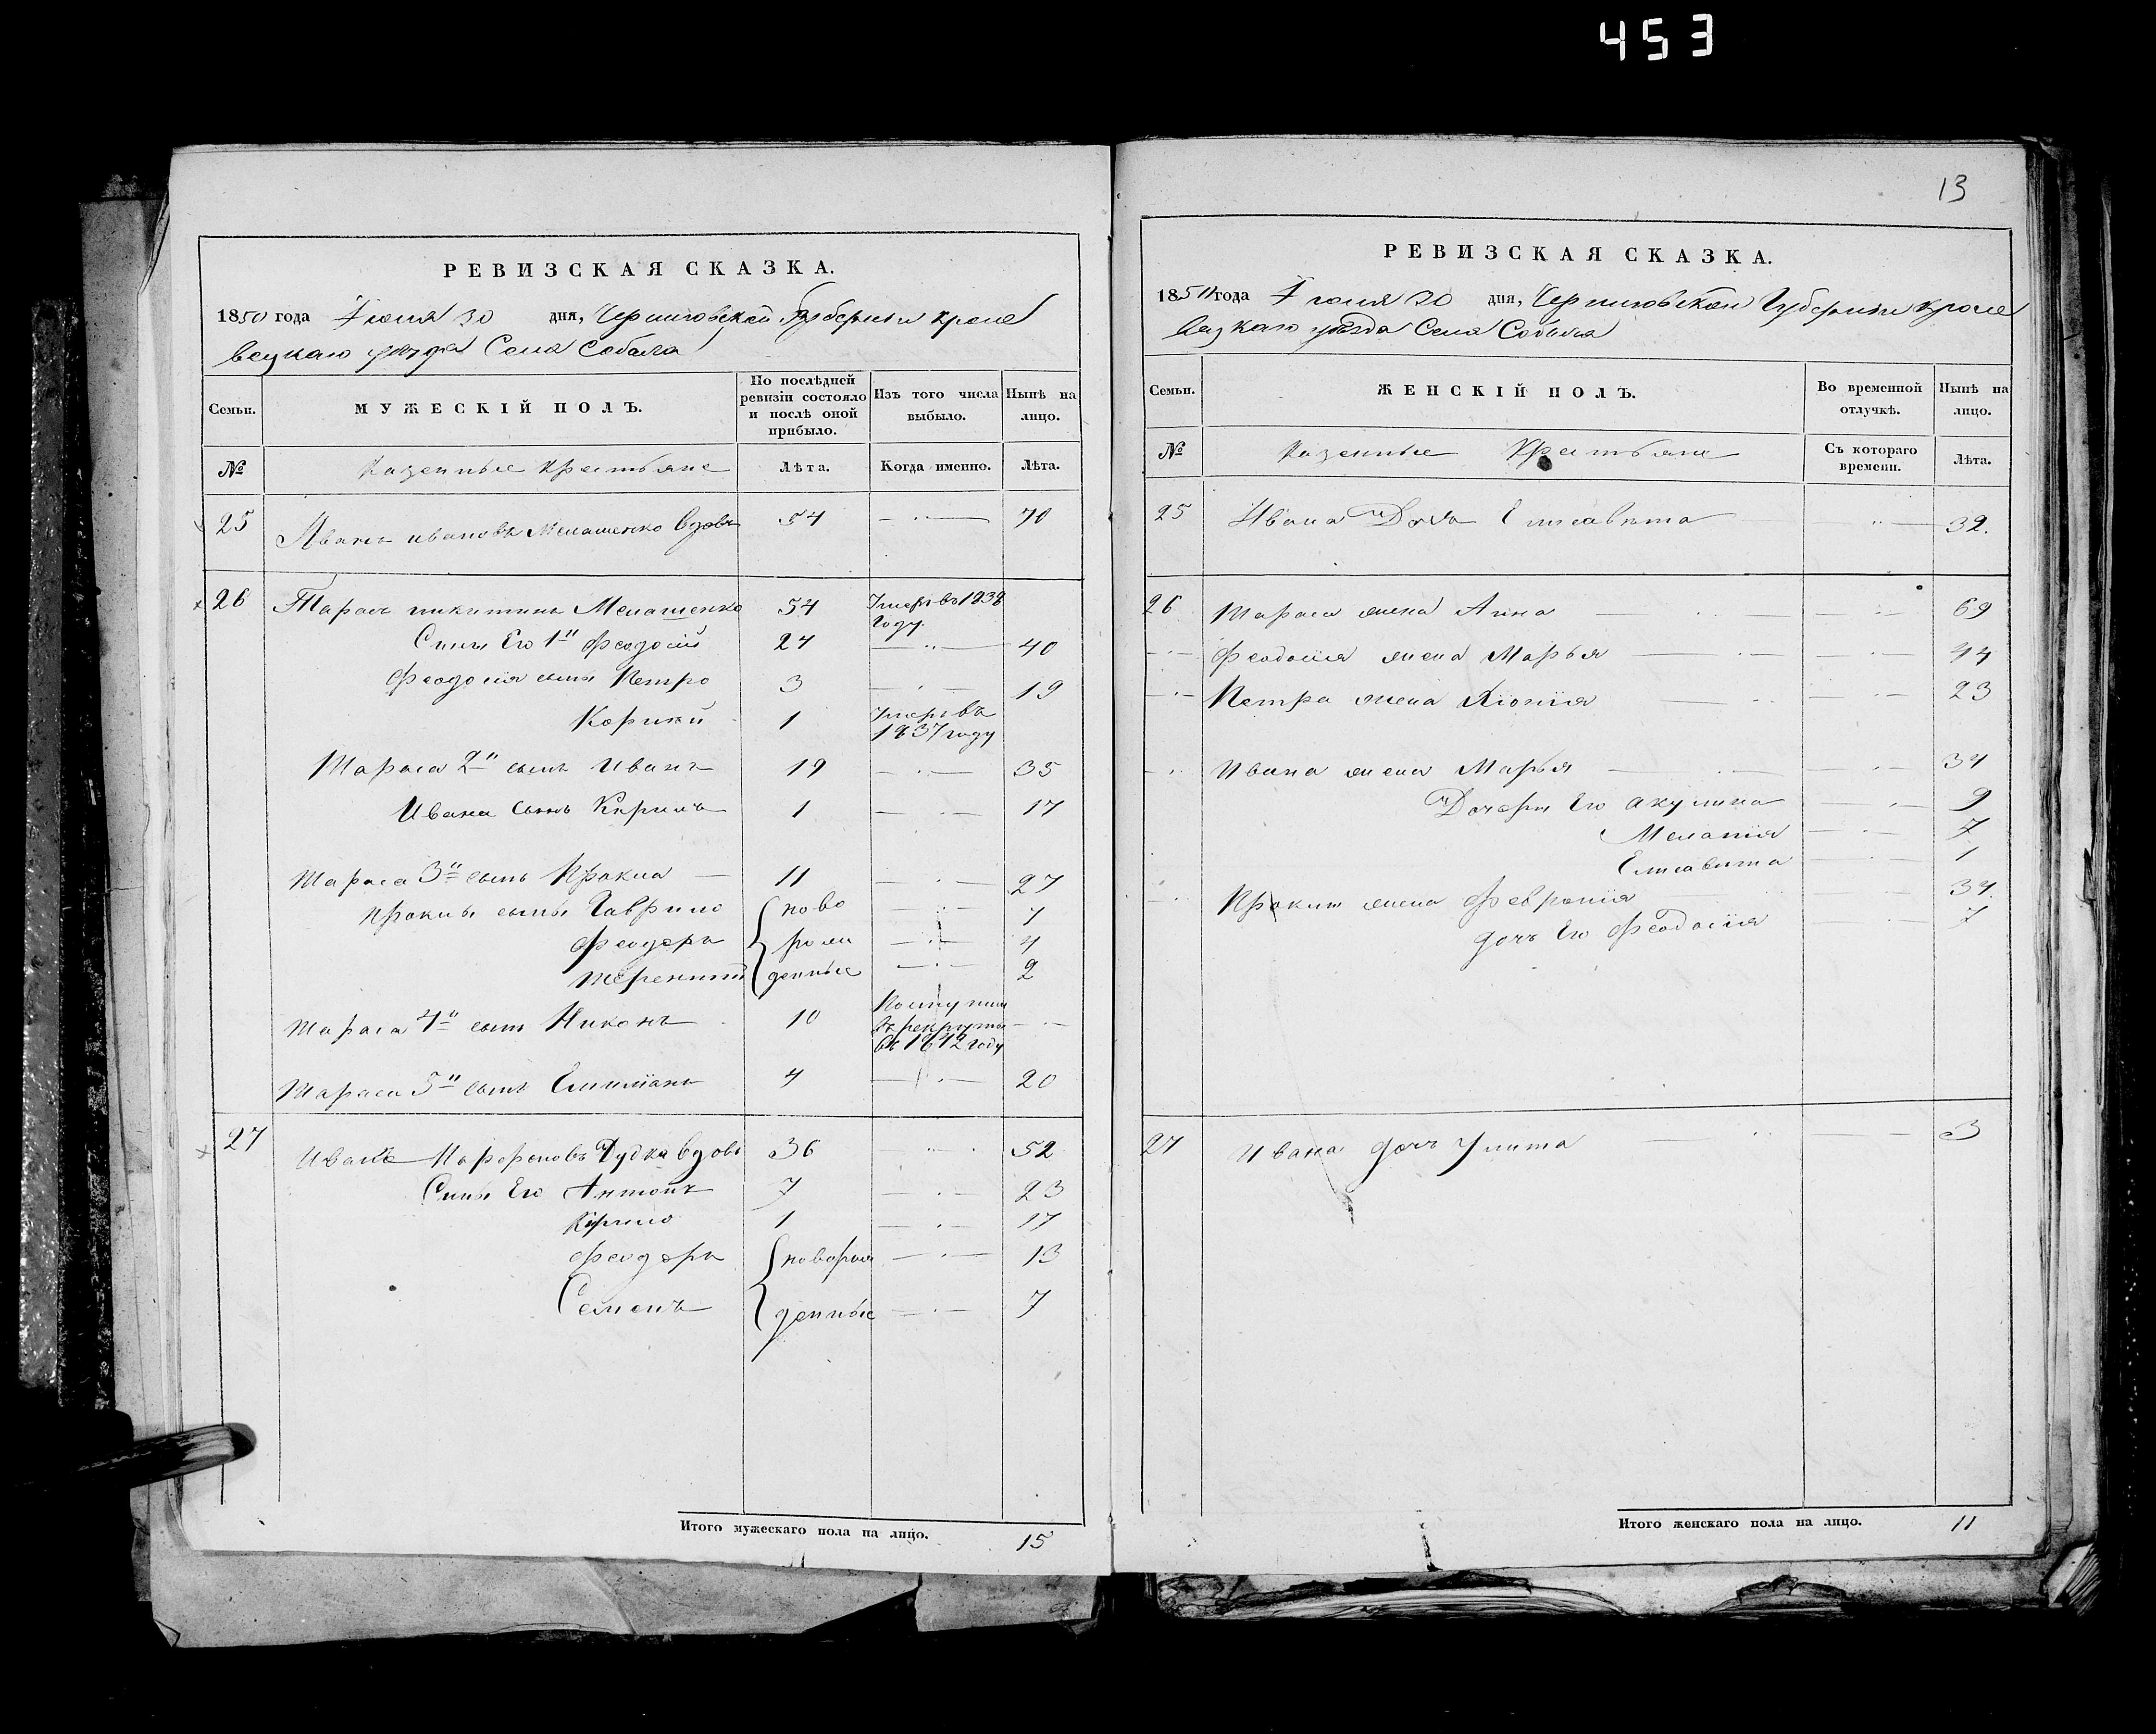 453
РЕВИЗСКАЯ СКАЗКА.
1850 года Июня 30 дня, Черниговской Губернии Кроле
вецкаго уезда Села Собыча
Семьи.
МУЖЕСКІЙ ПОЛЪ.
По послѣдней ревизіи состояло и послѣ оной прибыло.
Изъ того числа выбыло.
Нынѣ на лицо.
№
Казенные Крестьяне
Лѣта.
Когда именно.
Лѣта.
25 Иванъ Ивановъ Мелашенко вдовъ 54 — 70
26 Тарасъ Никитинъ Мелашенко 54 Умеръ въ 1838 Году.
Сыны Его 1й Феодосій 24 — 40
Феодосія сыны Петро 3 — 19
1 Умеръ въ 1837 году
Тараса 2й сынъ Иванъ 19 — 35
Ивана сынъ Кирилъ 1 — 17
Тараса 3й сынъ Прокпа — 11 — 27
сыны Гаврило ново — 7
Феодоръ рож — 4
Терентій денные — 2
Тараса 4й сынъ Никонъ 10 Поступил въ рекруты въ 1842 году —
Тараса 5й сынъ 4 — 20
27 Иванъ Дудка вдовъ 36 — 52
Сыны Его Антонъ 7 — 23
Кирило 1 — 17
Феодоръ новорож — 13
Семенъ денные — 7
Итого мужескаго пола на лицо. 15
13
РЕВИЗСКАЯ СКАЗКА.
1850 года Июня 30 дня, Черниговской Губернии Кроле
вецкаго уезда Села Собыча
Семьи.
ЖЕНСКІЙ ПОЛЪ.
Во временной отлучкѣ.
Нынѣ на лицо.
№
Казенные Крестьяне
Съ котораго времени.
Лѣта.
25 Ивана Дочь Елисавета — 32.
26 Тараса жена Анна — 69
Феодосія жена Марья — 44
Петра жена — 23
Ивана жена Марья — 34
Дочери Его Акулина — 9
Меланія — 7
Елисавета — 1
жена Февронія — 34
дочь Его Феодосія — 7
27 Ивана дочь Улита — 3
Итого женскаго пола на лицо. 11